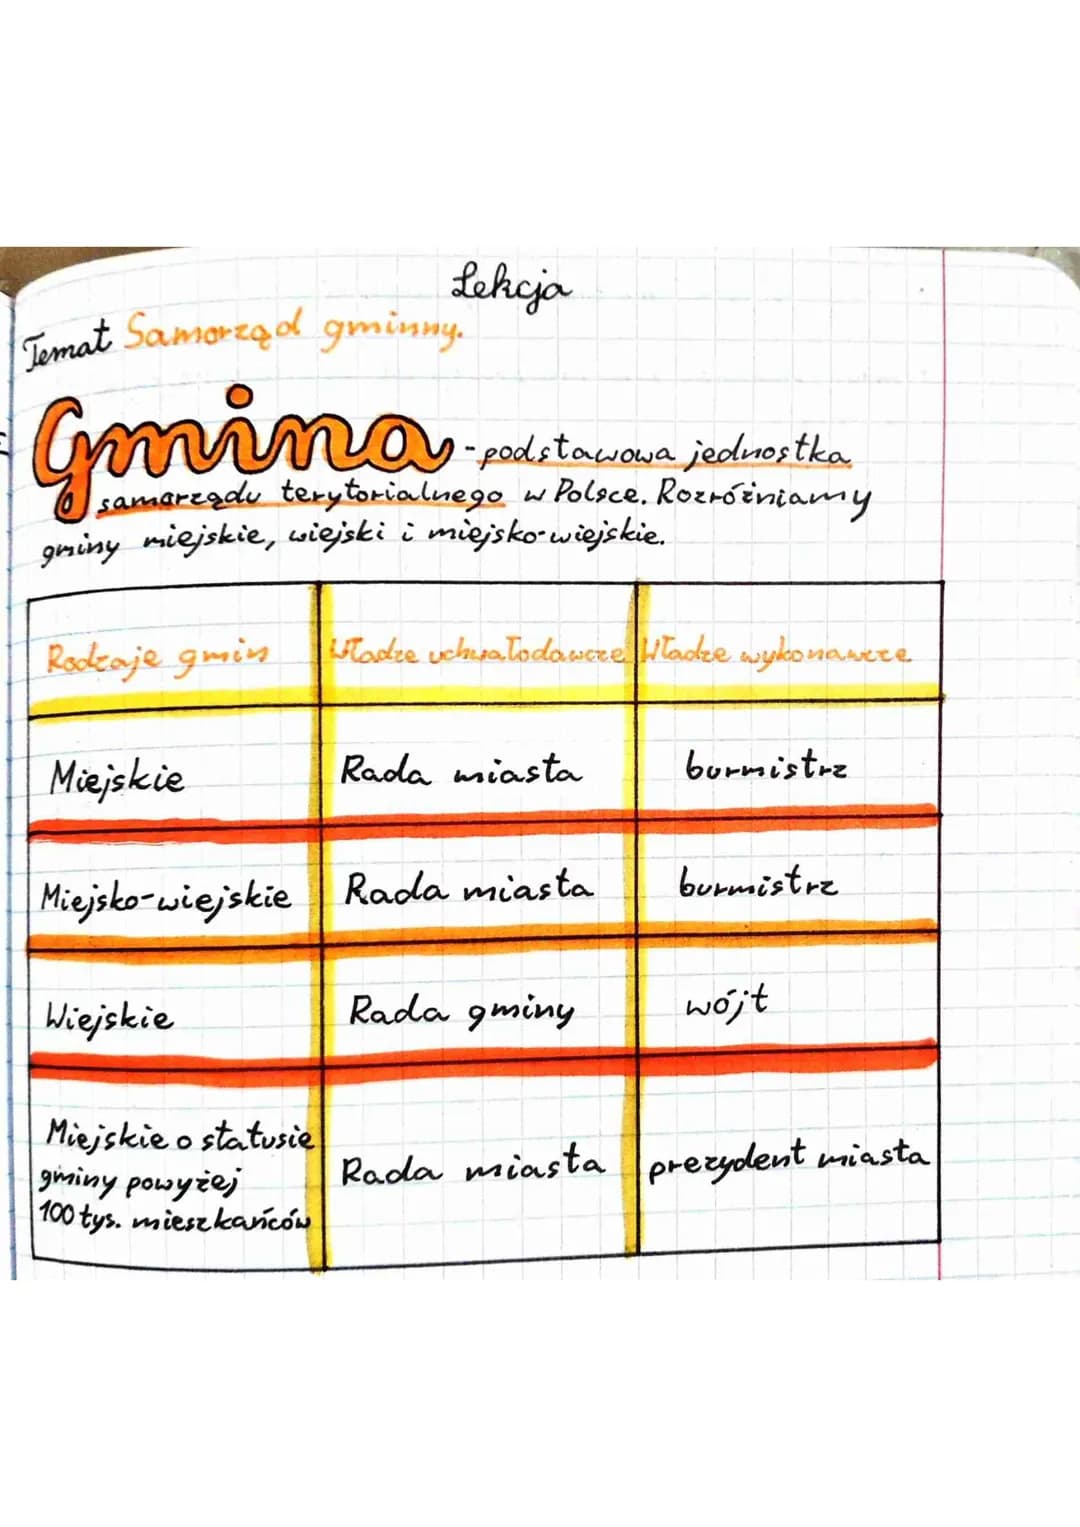 Lekcja
Temat Samorząd gminny.
Gmina - podstawowa jednostka
samorządu terytorialnego w Polsce. Rozróżniamy
gminy miejskie, wiejski i miejsko-wiejskie.
Rodzaje gmin Władze uchwałodawcze Władze wykonawcze
Miejskie Rada miasta burmistrz
Miejsko-wiejskie Rada miasta burmistrz
Wiejskie Rada gminy wójt
Miejskie o statusie
gminy powyżej
100 tys. mieszkańców Rada miasta prezydent miasta